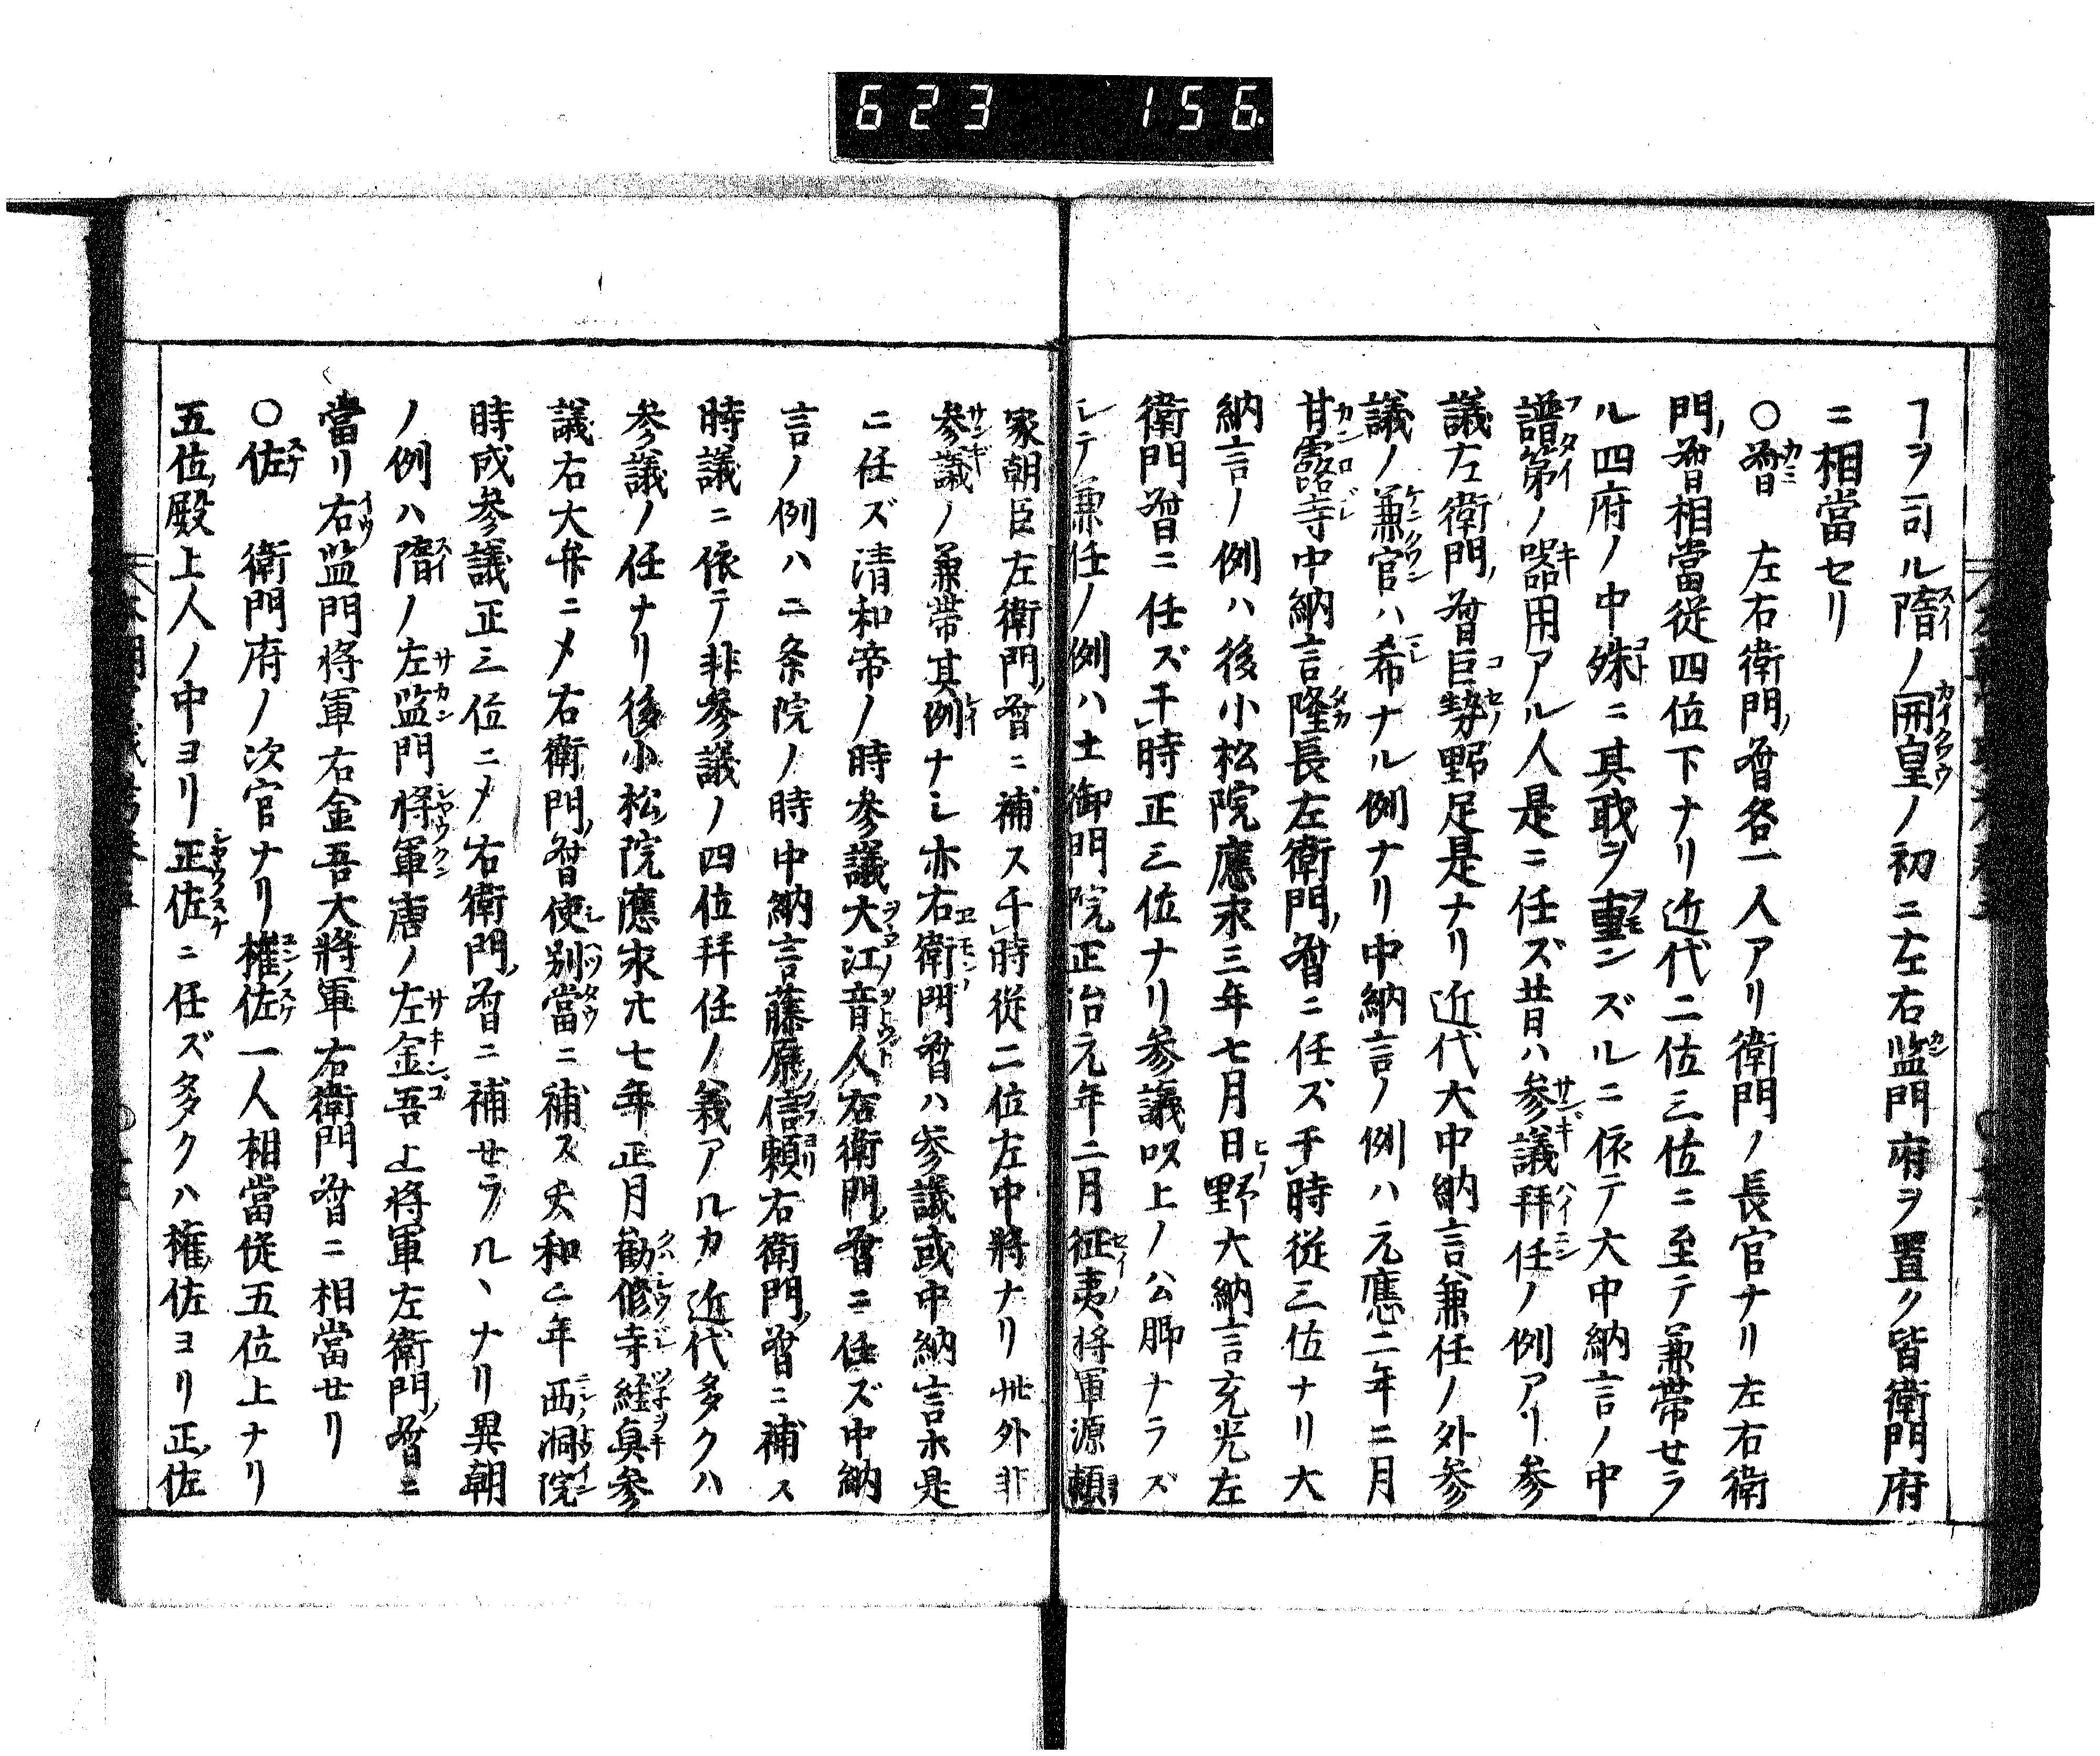 623 156
ヿヲ司ル隋ノ開皇ノ初ニ左右监門府ヲ置ク皆衛門府
ニ相當セリ
○督 左右衛門督各一人アリ衛門ノ長官ナリ左右衛
門督相當従四位下ナリ近代二位三位ニ至テ兼帯セラ
ル四府ノ中殊ニ其職ヲ重ンズルニ依テ大中納言ノ中
譜第ノ器用アル人是ニ任ズ昔ハ参議拜任ノ例アリ参
議左衛門督巨勢野足是ナリ近代大中納言兼任ノ外参
議ノ兼官ハ希ナル例ナリ中納言ノ例ハ元應二年二月
甘露寺中納言隆長左衛門督ニ任ズ于時従三位ナリ大
納言ノ例ハ後小松院應永三年七月日野大納言充光左
衛門督ニ任ズ于時正三位ナリ参議以上ノ公卿ナラズ
シテ兼任ノ例ハ土御門院正治元年二月征夷将軍源頼
家朝臣左衛門督ニ補ス于時従二位左中將ナリ此外非
参議ノ兼帯其例ナシ亦右衛門督ハ参議或中納言ホ是
ニ任ズ清和帝ノ時参議大江音人右衛門督ニ任ズ中納
言ノ例ハ二条院ノ時中納言藤原信頼右衛門督ニ補ス
時議ニ依テ非参議ノ四位拜任ノ義アルカ近代多クハ
参議ノ任ナリ後小松院應永廿七年正月勧修寺経真参
議右大弁ニメ右衛門督使別當ニ補ス文和二年西洞院
時成参議正三位ニメ右衛門督ニ補セラルヽナリ異朝
ノ例ハ隋ノ左监門将軍唐ノ左金吾上将軍左衛門督ニ
當リ右监門将軍右金吾大將軍右衛門督ニ相當せリ
○佐 衛門府ノ次官ナリ権佐一人相當従五位上ナリ
五位殿上人ノ中ヨリ正佐ニ任ズ多クハ権佐ヨリ正佐